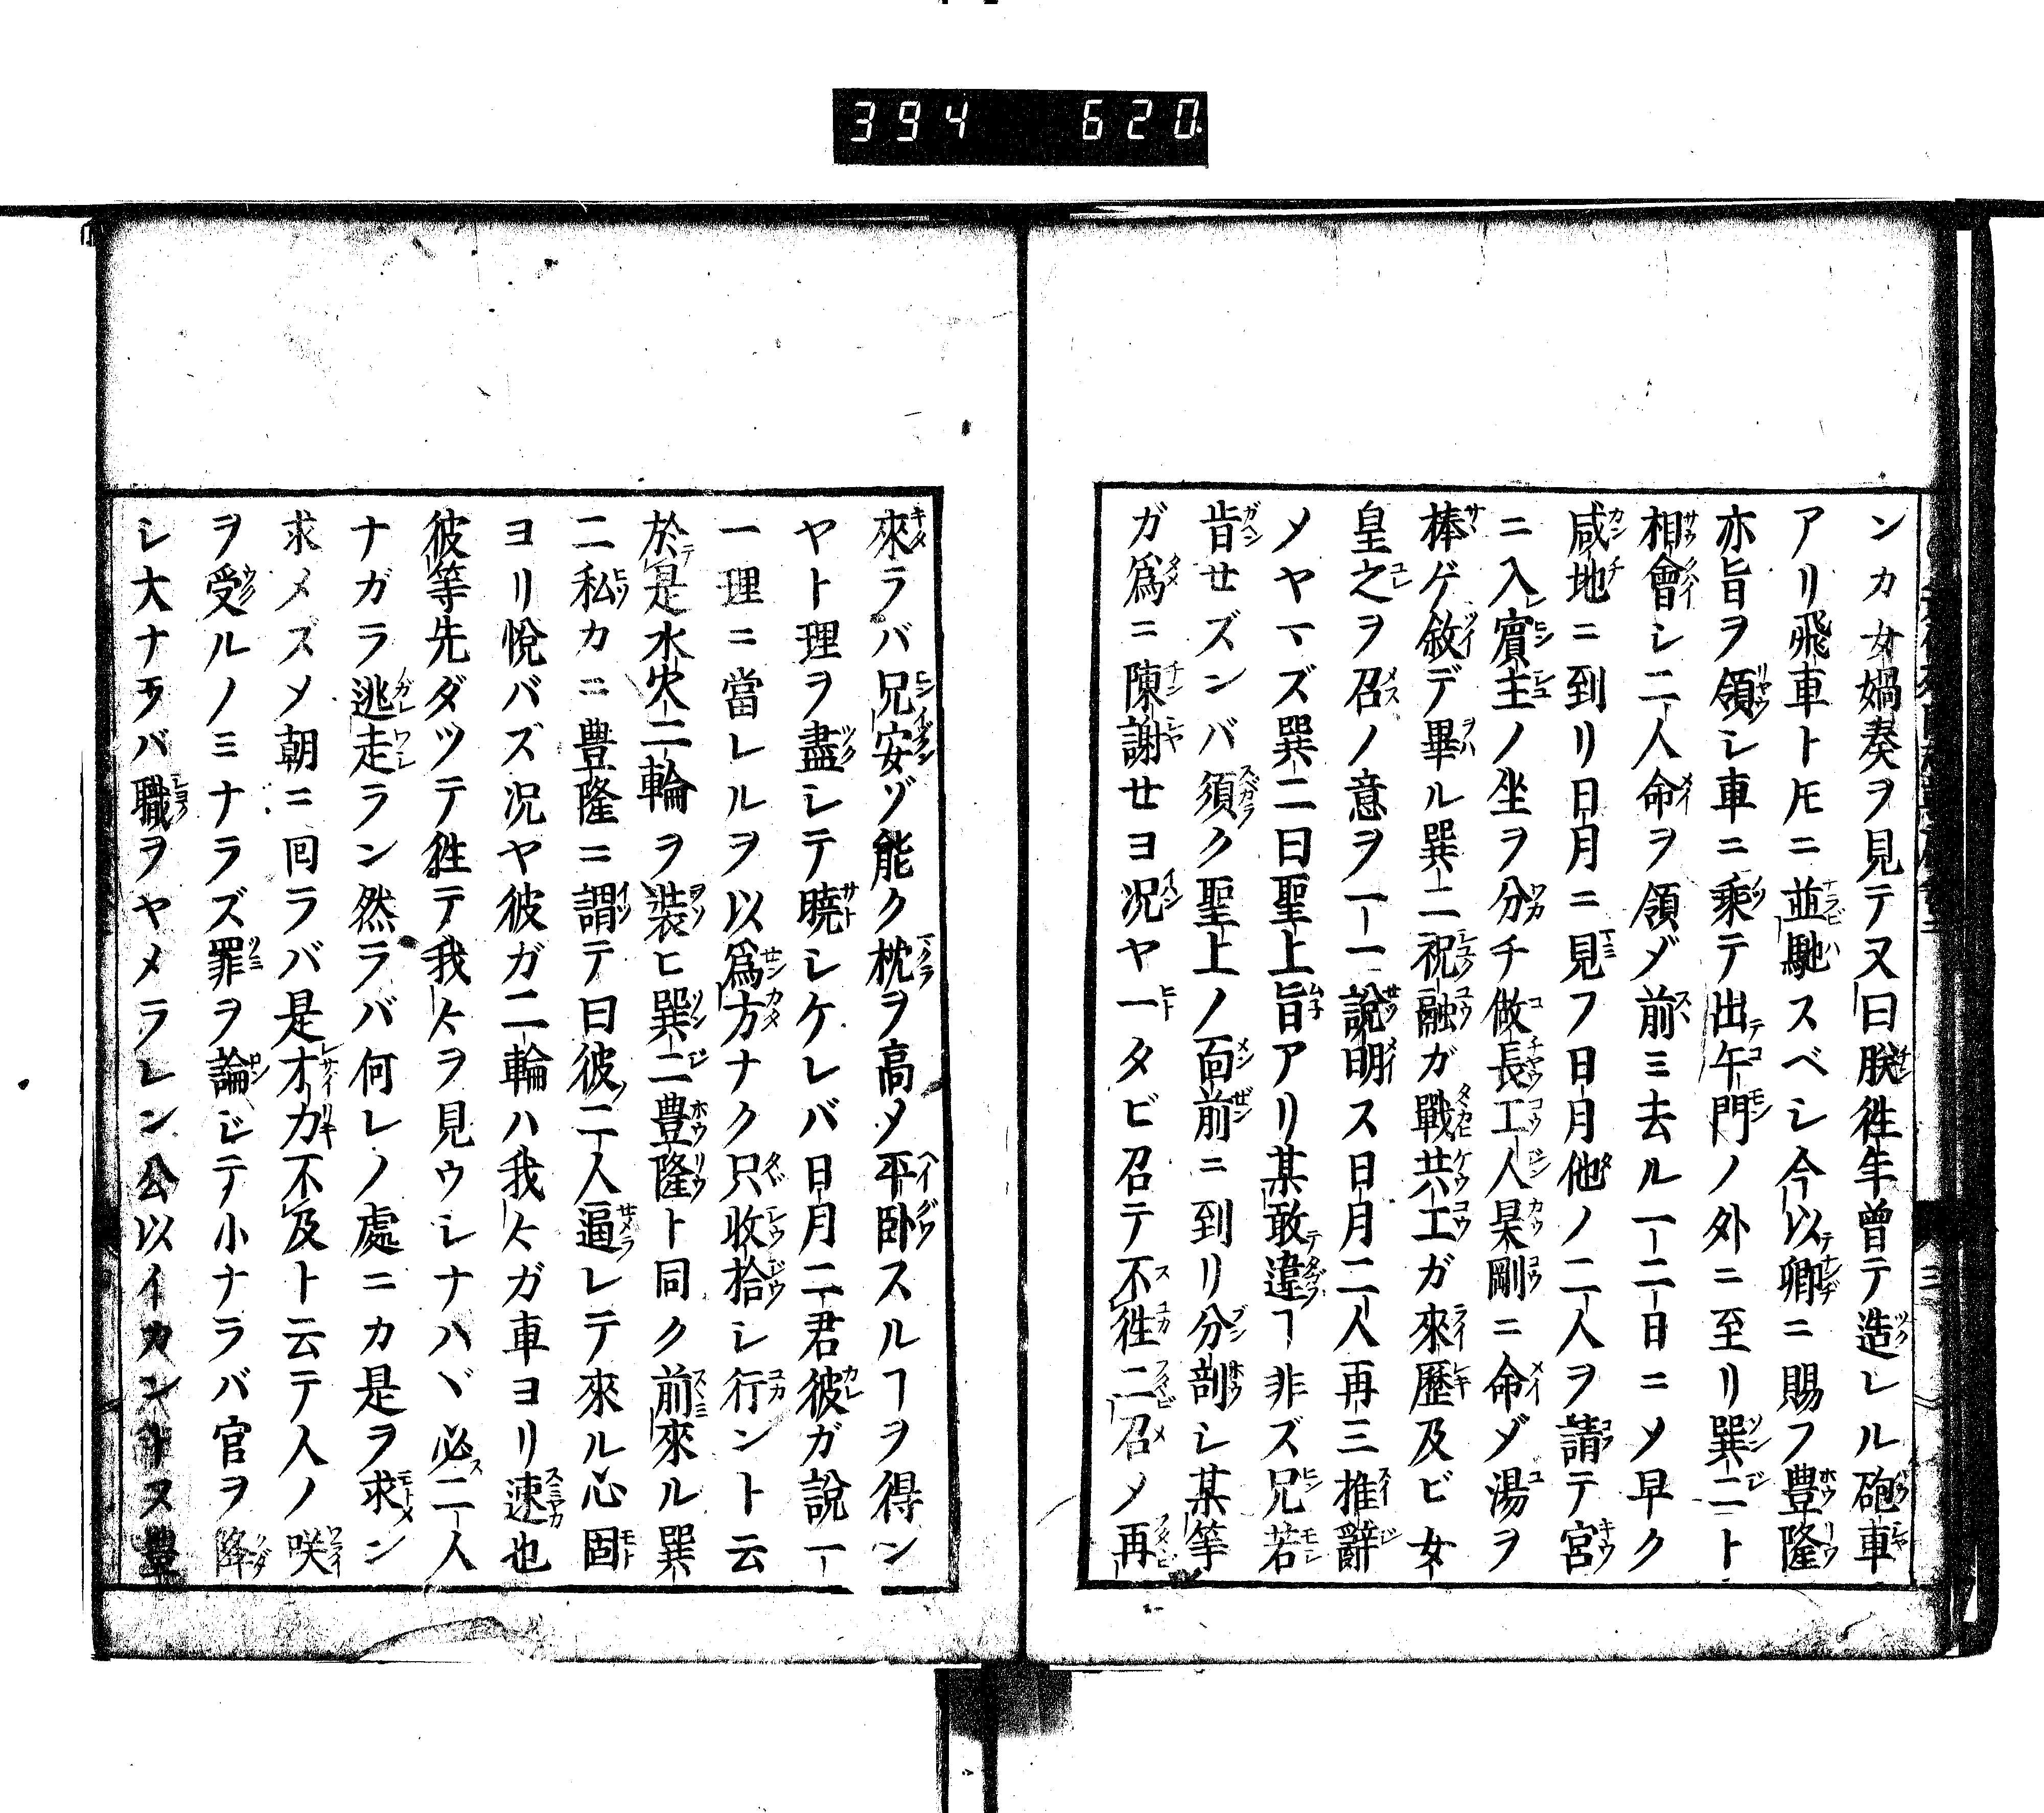 394 620
ンカ女媧奏ヲ見テ又曰朕徃年曾テ造レル砲車
アリ飛車トモニ並馳スベシ今以卿ニ賜フ豊隆
亦旨ヲ領シ車ニ乗テ出午門ノ外ニ至リ巽二ト
相會シ二人命ヲ領ダ前ミ去ル一二日ニメ早ク
咸地ニ到リ日月ニ見フ日月他ノ二人ヲ請テ宮
ニ入賓主ノ坐ヲ分チ做長工人杲剛ニ命ダ湯ヲ
棒ゲ敘デ畢ル巽二祝融ガ戰共工ガ來歷及ビ女
皇之ヲ召ノ意ヲ一一說明ス日月二人再三推辭
メヤマズ巽二曰聖上旨アリ某敢違ヿ非ズ兄若
肯せズンバ須ク聖上ノ面前ニ到リ分剖シ某等
ガ爲ニ陳謝せヨ况ヤ一タビ召テ不徃二召メ再
來ラバ兄安ゾ能ク枕ヲ高メ平卧スルヿヲ得ン
ヤト理ヲ盡シテ曉シケレバ日月二君彼ガ說一
一理ニ當レルヲ以爲方ナク只收拾シ行ント云
於是水火二輪ヲ裝ヒ巽二豊隆ト同ク前來ル巽
二私カニ豊隆ニ謂テ曰彼二人逼レテ來ル心固
ヨリ悅バズ况ヤ彼ガ二輪ハ我々ガ車ヨリ速也
彼等先ダツテ徃テ我々ヲ見ウシナハヾ必二人
ナガラ逃走ラン然ラバ何レノ處ニカ是ヲ求ン
求メズメ朝ニ囘ラバ是才力不及ト云テ人ノ咲
ヲ受ルノミナラズ罪ヲ論ジテ小ナラバ官ヲ降
シ大ナラバ職ヲヤメラレン公以イカントス豊